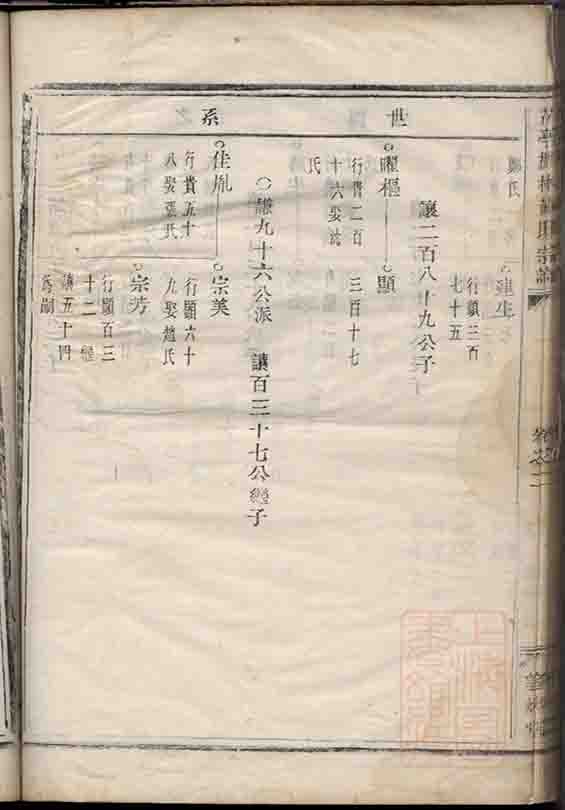 世系
蓮生
行顯三百
七十五
讓二百八十九公子
曜樞
行貴二百
十六娶沈
氏
顯
三百十七
謙九十六公派
讓百三十七公繼子
佳胤
行貴五十
八娶張氏
宗美
行顯六十
九娶趙氏
宗芳
行顯百三
十二繼
讓五十四
爲嗣
卷之二